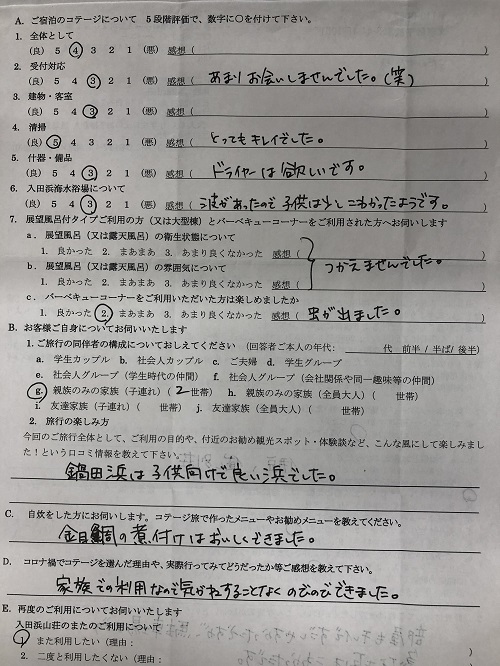 A. ご宿泊のコテージについて 5段階評価で、数字に○を付けて下さい。
1. 全体として
(良) 5 4 3 2 1 (悪) 感想 ( )
2. 受付対応
(良) 5 4 3 2 1 (悪) 感想 ( あまりお会いしませんでした。(笑) )
3. 建物・客室
(良) 5 4 3 2 1 (悪) 感想 ( )
4. 清掃
(良) 5 4 3 2 1 (悪) 感想 ( とってもキレイでした。 )
5. 什器・備品
(良) 5 4 3 2 1 (悪) 感想 ( ドライヤーは欲しいです。 )
6. 入田浜海水浴場について
(良) 5 4 3 2 1 (悪) 感想 ( 波があったので子供は少しこわかったようです。 )
7. 展望風呂付タイプご利用の方(又は大型棟)とバーベキューコーナーをご利用された方へお伺いします
a. 展望風呂(又は露天風呂)の衛生状態について
1. 良かった 2. まあまあ 3. あまり良くなかった 感想 ( )
b. 展望風呂(又は露天風呂)の雰囲気について つかえませんでした。
1. 良かった 2. まあまあ 3. あまり良くなかった 感想 ( )
c. バーベキューコーナーをご利用いただいた方は楽しめましたか
1. 良かった 2. まあまあ 3. あまり良くなかった 感想 ( 虫が出ました。 )
B. お客様ご自身についてお伺いいたします
1. ご旅行の同伴者の構成についておしえてください (回答者ご本人の年代: 代 前半 / 半ば / 後半)
a. 学生カップル b. 社会人カップル c. ご夫婦 d. 学生グループ
e. 社会人グループ(学生時代の仲間) f. 社会人グループ(会社関係や同一趣味等の仲間)
g. 親族のみの家族(子連れ) ( 2 世帯) h. 親族のみの家族(全員大人) ( 世帯)
i. 友達家族(子連れ) ( 世帯) j. 友達家族(全員大人) ( 世帯)
2. 旅行の楽しみ方
今回のご旅行全体として、ご利用の目的や、付近のお勧め観光スポット・体験談など、こんな風にして楽しみまし
た!という口コミ情報を教えて下さい。
鍋田浜は子供向けで良い浜でした。
C. 自炊をした方にお伺いします。コテージ旅で作ったメニューやお勧めメニューを教えてください。
金目鯛の煮付けはおいしくできました。
D. コロナ禍でコテージを選んだ理由や、実際行ってみてどうだったか等ご感想を教えて下さい。
家族での利用なので気がねすることなくのびのびできました。
E. 再度のご利用についてお伺いいたします
入田浜山荘のまたのご利用について
1. また利用したい (理由: )
2. 二度と利用したくない (理由: )